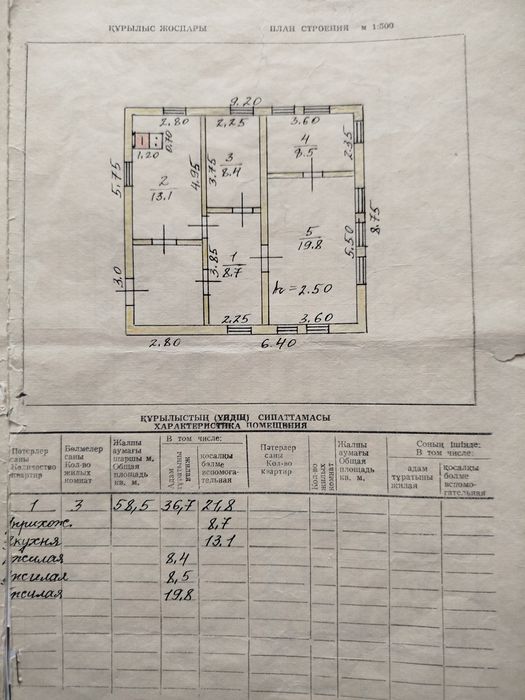 ҚҰРЫЛЫС ЖОСПАРЫ ПЛАН СТРОЕНИЯ м 1:500
9.20
2,80 2,25 3.60
1.20 0,70
5,75
2
13.1
4,95
3,75
3
8.4
4
8.5
2.35
5
19.8
5,50
8.75
3,0
3,85
1
8.7
h = 2.50
2.25 3.60
2.80 6.40
ҚҰРЫЛЫСТЫҢ (ҮЙДІҢ) СИПАТТАМАСЫ
ХАРАКТЕРИСТИКА ПОМЕЩЕНИЯ
Пәтерлер саны Количество квартир
Бөлмелер саны Кол-во жилых комнат
Жалпы аумағы шаршы м. Общая площадь кв. м.
В том числе:
Адам тұратыны жилая
қосалқы бөлме вспомога-тельная
Пәтерлер саны Кол-во квартир
Кол-во жилых комнат
Жалпы аумағы Общая площадь кв. м.
Соның ішінде:
В том числе:
адам тұратыны жилая
қосалқы бөлме вспомо-гательная
1 3 58,5 36,7 21,8
прихож. 8,7
кухня 13.1
жилая 8,4
жилая 8,5
жилая 19,8